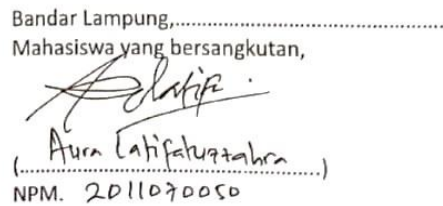 Bandar Lampung,..........................................
Mahasiswa yang bersangkutan,
Aura Latifatuzzahra
(......................................................)
NPM. 2011070050